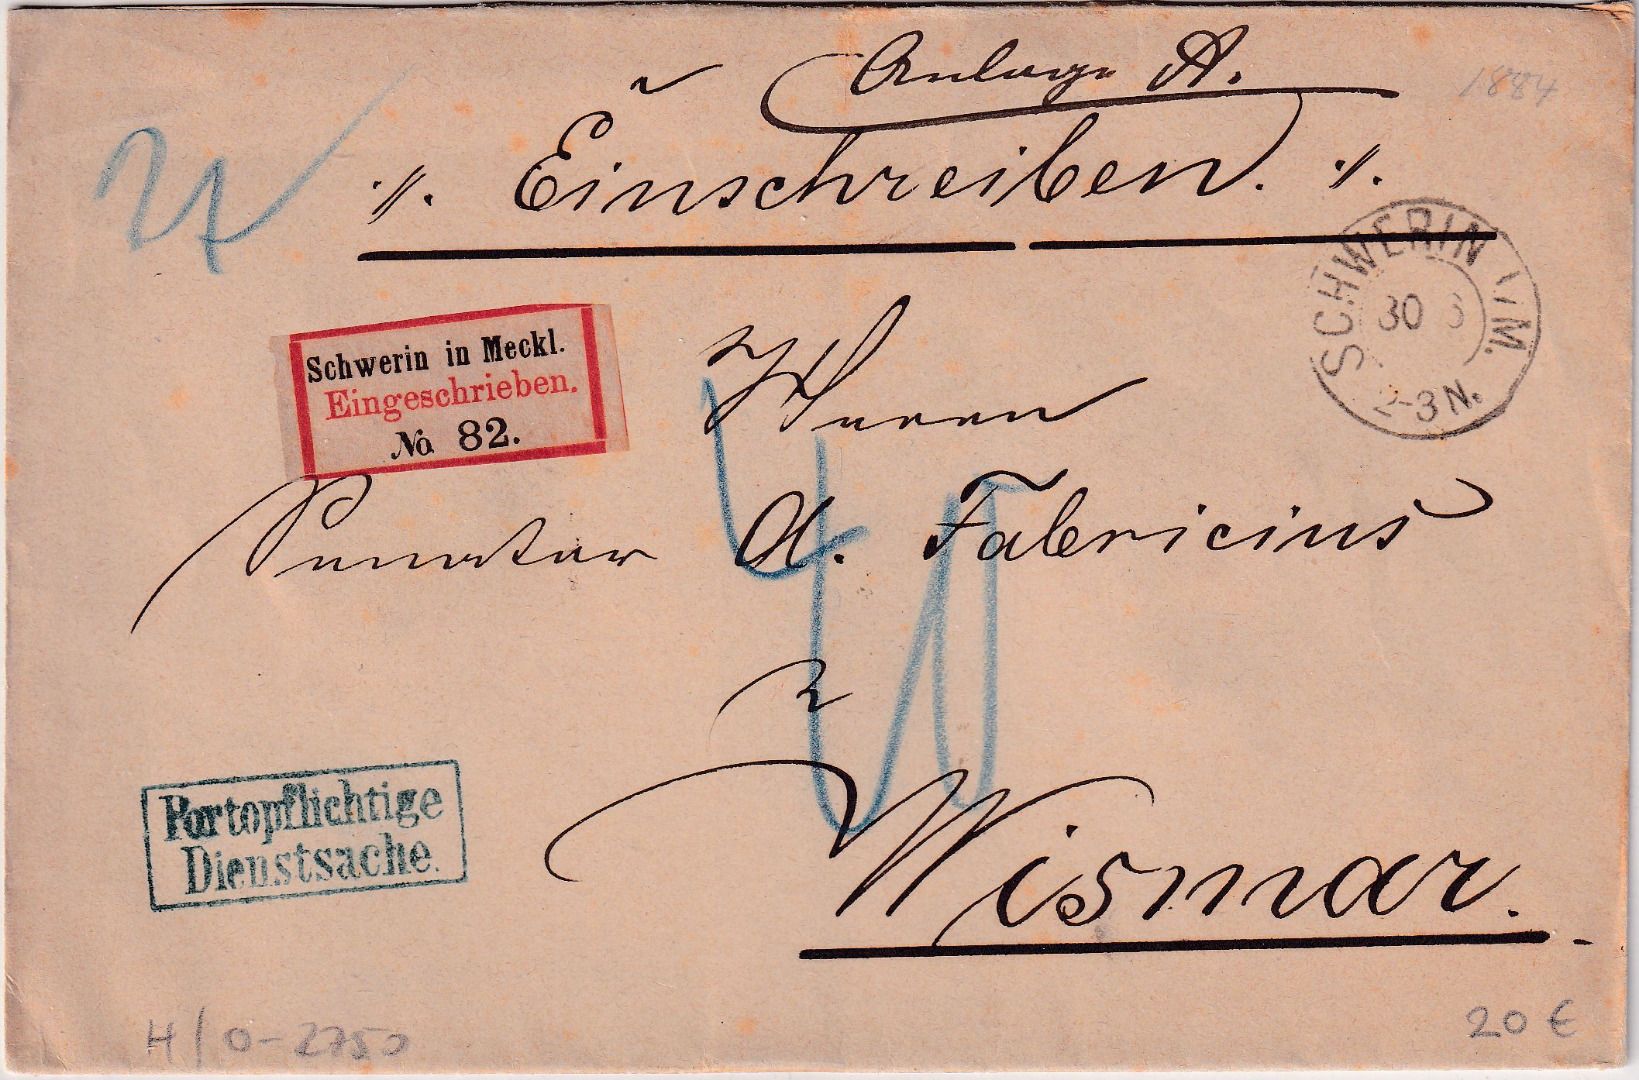 Anlage A.
1884
Einschreiben.
SCHWERIN I/M.
30 3
2-3 N.
Schwerin in Meckl.
Eingeschrieben.
No. 82.
Herrn
Senator A. Fabricius
40
Wismar.
Portopflichtige
Dienstsache.
H/0-2750
20 €